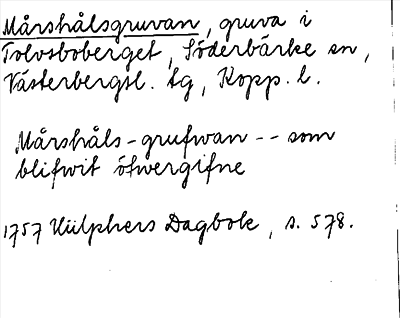 Mårshålsgruvan, gruva i
Tolvsboberget, Söderbärke sn,
Västerbergsl. tg, Kopp. l.
Mårshåls-grufwan -- som
blifwit öfwergifne
1757 Hülphers Dagbok, s. 578.